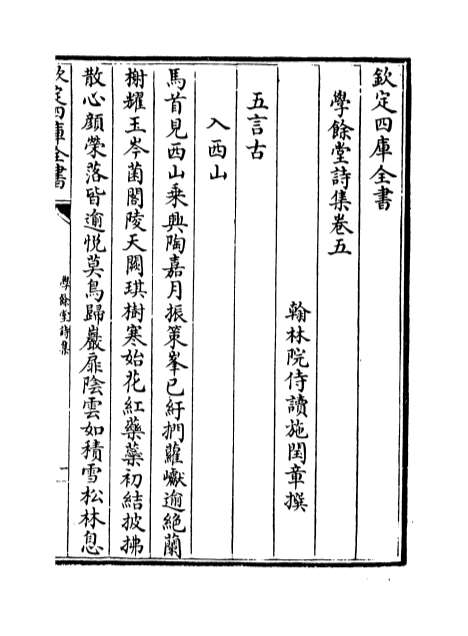 欽定四庫全書
學餘堂詩集卷五
翰林院侍讀施閏章撰
五言古
入西山
馬首見西山乗興陶嘉月振策峯已紆捫蘿巘逾絶蘭
榭耀玉岑菌閣陵天闕琪樹寒始花紅藥藥初結披拂
散心顔榮落皆逾悦莫鳥歸巖扉陰雲如積雪松林息
欽定四庫全書
學餘堂詩集
一